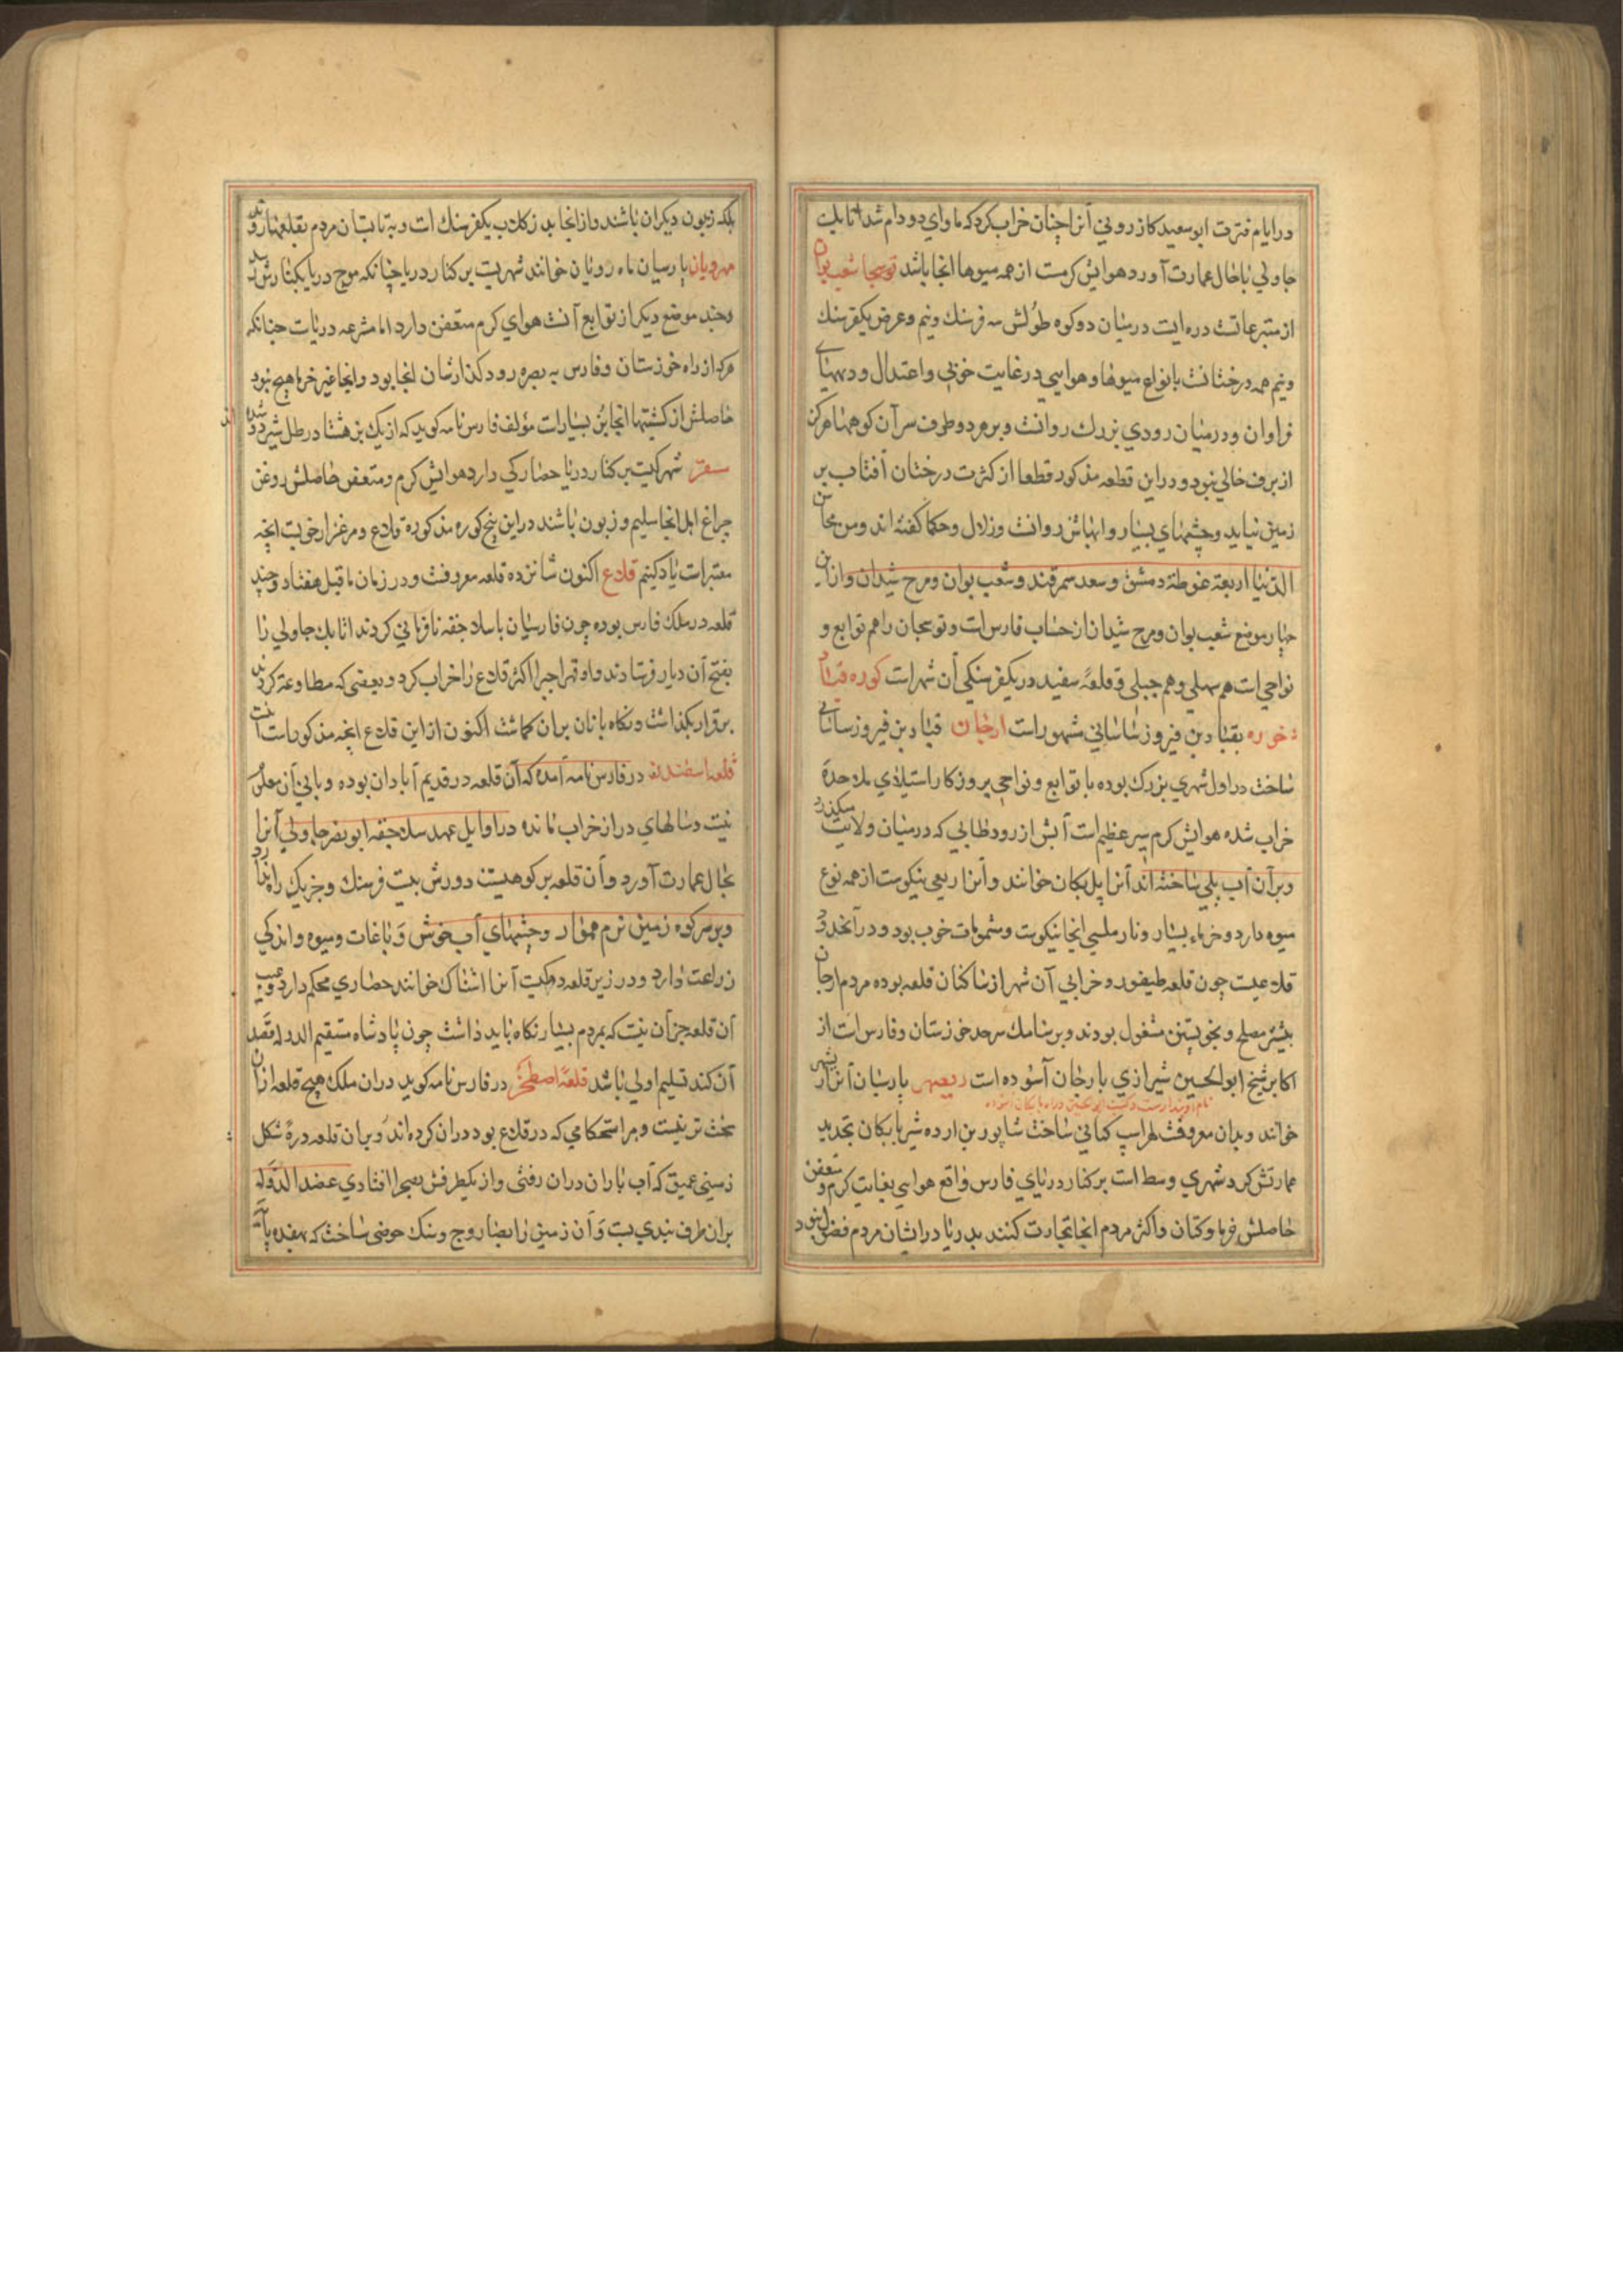 در ایام فترت ابوسعید کازرونی آنرا چنان خراب کرد که ماوای دودام شد اتابک
جاولی باحال عمارت آورد هوایش کرمست از همه میوها انجا باشد توسجا شعب بوان
از متنزهاتست دره ایست در میان دو کوه طولش سه فرسنک ونیم وعرض یکفرسنک
ونیم همه درختانست بانواع میوها وهوایی در غایت خوبی واعتدال ودیهای
فراوان ودرمیان رودی بزرک روانست وبر هر دو طرف سر آن کوهها هرکز
از برف خالی نبود ودر این قطعه مذکور قطعا از کثرت درختان آفتاب بر
زمین نیاید وچشمهای بسیار وابهاش روانست وزلال وحکما کفته اند ومن محاسن
الدنیا اربعة غوطة دمشق وسعد سمرقند وشعب بوان ومرج شیدان واز این
چهار موضع شعب بوان ومرج شیدان از حساب فارس است وتوسجان را هم توابع و
نواحی است هم سهلی وهم جبلی وقلعهٔ سفید در یکفرسنکی آن شهر است کوره قباد
خوره بقباد بن فیروز ساسانی مشهور است ارجان قباد بن فیروز ساسانی
ساخت در اول شهری بزرک بوده با توابع ونواحی بروزکار استیلای ملاحدهٔ
خراب شده هوایش کرم سیر عظیم است آبش از رود طابی که در میان ولایت میکذرد
وبر آن آب پلی ساخته اند آنرا پل بکان خوانند وآنرا ریعی نیکوست از همه نوع
میوه دارد وخرماء بسیار ونار ملیسی انجا نیکوست وشمومات خوب بود ودر آنحدود
قلاعیست چون قلعه طیفور وخرابی آن شهر از ساکنان قلعه بوده مردم ارجان
بیشتر مصلح وبخویشتن مشغول بودند وبرسامک سرحد خوزستان وفارس است از
اکابر شیخ ابوالحسین شیرازی بارجان آسوده است ریعهر پارسیان آنرا ریشهر
نام او بندارست وکنیت ابوالحسین در راه بابکان آسوده
خوانند وبدان معروفست لهراسپ کیانی ساخت شاپور بن اردشیر بابکان تجدید
عمارتش کرد شهری وسط است بر کنار دریای فارس واقع هوایی بغایت کرم ومتعفن
حاصلش خرما وکتان واکثر مردم انجا تجارت کنند بدریا در ایشان مردم فضول نبود
بلکه زبون دیکران باشند واز انجا بد زکلاب یکفرسنک است وبتابستان مردم بقلعها روند
مهرویان پارسیان ماه رویان خوانند شهریست بر کنار دریا چنانکه موج دریا بکنارش رسد
وچند موضع دیکر از توابع آنست هوای کرم متعفن دارد اما مشرعه دریاست چنانکه
هرکه از راه خوزستان وفارس به بصره رود کذارشان انجا بود وانجا غیر خرما هیچ نبود
حاصلش از کشتیها انجا بز بسیار است مؤلف فارس نامه کوید که از یک بز هشتاد رطل شیر دوشیده اند
سقر شهرکیست بر کنار دریا حصارکی دارد هوایش کرم ومتعفن حاصلش روغن
چراغ اهل انجا سلیم وزبون باشند در این پنج کوره مذکوره قلاع ومرغزار خوبست انچه
معتبر است یاد کنیم قلاع اکنون شانزده قلعه معروفست ودر زمان ماقبل هفتاد وچند
قلعه در ملک فارس بوده چون فارسیان با سلاجقه نافرمانی کردند اتابک جاولی را
بفتح آن دیار فرستادند واو قهرا جبرا اکثر قلاع را خراب کرد وبعضی که مطاوعت کردند
برقرار بکذاشت ونکاه بانان بران کماشت اکنون از این قلاع انچه مذکور است اینست
قلعه اسفندیار در فارس نامه آمده که آن قلعه در قدیم آبادان بوده وبانی آن معلوم
نیست وسالهای دراز خراب مانده در اوایل عهد سلاجقه ابونصر جاولی آنرا
بحال عمارت آورد وآن قلعه بر کوهیست دورش بیست فرسنک وجز یک راه ندارد
وبر سر کوه زمین نرم هموار وچشمهای آب خوش وباغات ومیوه واندکی
زراعت دارد ودر زیر قلعه دهکیست آنرا اشتاک خوانند حصاری محکم دارد وعیب
آن قلعه جز آن نیست که بمردم بسیار نکاه باید داشت چون پادشاه مستقیم الدوله قصد
آن کند تسلیم اولی باشد قلعهٔ اصطخر در فارس نامه کوید در ان ملک هیچ قلعه از آن
سخت تر نیست وهر استحکامی که در قلاع بود در ان کرده اند وبران قلعه درهٔ شکل
زمینی عمیق که آب باران دران رفتی واز یکطرفش بصحرا افتادی عضد الدوله
بران طرف بندی بست وآن زمین را بصاروج وسنک حوضی ساخت که بهفده پایه